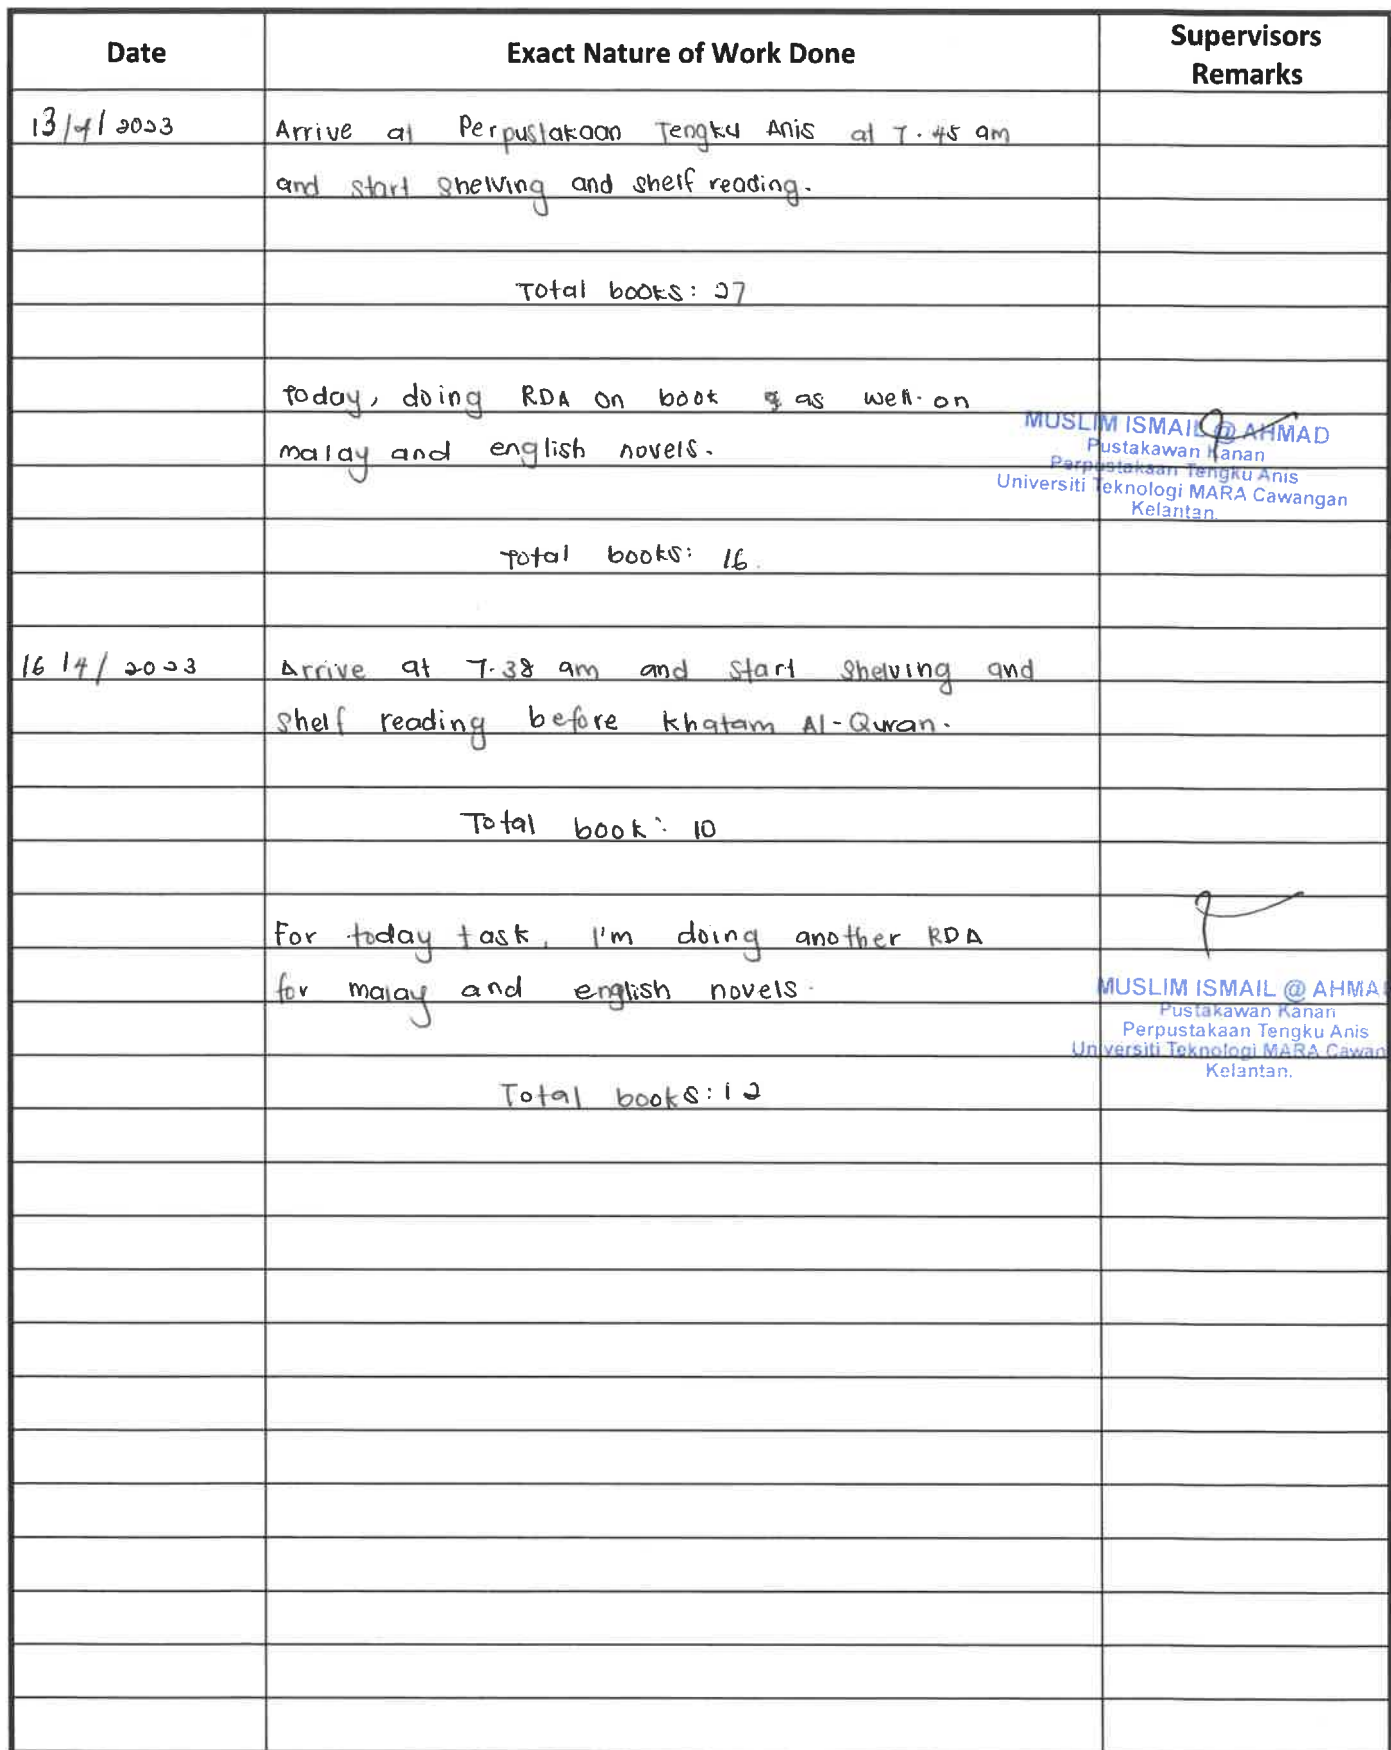 Date Exact Nature of Work Done Supervisors Remarks
13/4/2023 Arrive at Perpustakaan Tengku Anis at 7.45 am
and start shelving and shelf reading.
Total books: 27
Today, doing RDA on book & as well on
malay and english novels.
MUSLIM ISMAIL @ AHMAD
Pustakawan Kanan
Perpustakaan Tengku Anis
Universiti Teknologi MARA Cawangan
Kelantan.
Total books: 16.
16/4/2023 Arrive at 7.38 am and start shelving and
shelf reading before khatam Al-Quran.
Total book: 10
For today task, I'm doing another RDA
for malay and english novels.
MUSLIM ISMAIL @ AHMA
Pustakawan Kanan
Perpustakaan Tengku Anis
Universiti Teknologi MARA Cawan
Kelantan.
Total books: 12